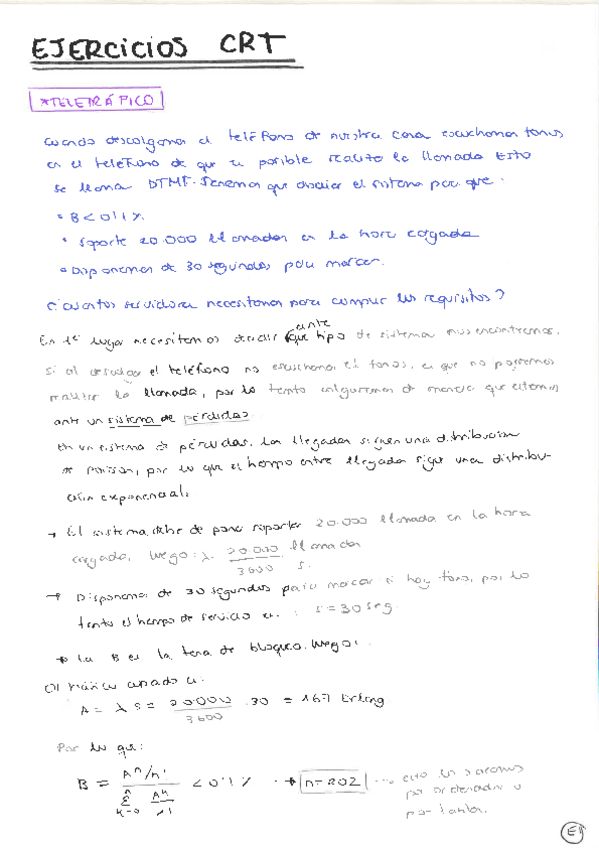 EJERCICIOS CRT
*TELETRÁFICO
Cuando descolgamos el teléfono de nuestra casa escuchamos tonos
en el teléfono de que es posible realizar la llamada. Esto
se llama DTMF. Tenemos que diseñar el sistema para que:
• B < 0'1 %
• soporte 20.000 llamadas en la hora cargada
• Disponemos de 30 segundos para marcar.
¿Cuántos servidores necesitamos para cumplir los requisitos?
En 1er lugar necesitamos decidir ante que tipo de sistema nos encontramos.
si al descolgar el teléfono no escuchamos el tonos, es que no podremos
realizar la llamada, por lo tanto colgaremos de manera que estamos
ante un sistema de pérdidas.
En un sistema de pérdidas, las llegadas siguen una distribución
de Poisson, por lo que el tiempo entre llegadas sigue una distribu-
ción exponencial.
→ El sistema debe de poder soportar 20.000 llamadas en la hora
cargada, luego: λ = 20.000 / 3600 llamadas / s.
→ Disponemos de 30 segundos para marcar si hay tono, por lo
tanto el tiempo de servicio es: s = 30 seg.
→ La B es la tasa de bloqueo. luego:
El tráfico cursado es:
A = λ s = 20000 / 3600 · 30 = 167 Erlang
Por lo que:
B = A^n/n! / Σ_{k=0}^{n} A^k/k! < 0'1 % → n=202 ... esto lo sacamos
por ordenador o
por tabla.
E1